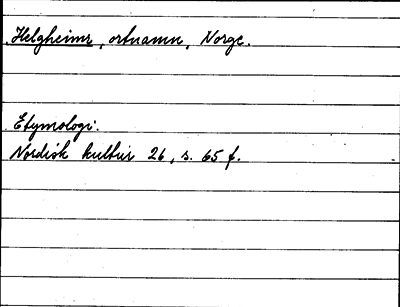 Helgheimr, ortnamn, Norge.
Etymologi:
Nordisk kultur 26, s. 65 f.